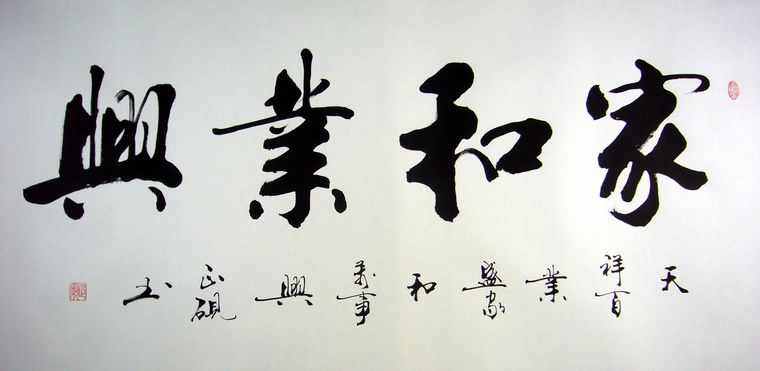 家和業興
天祥百業盛家和萬事興正硯书